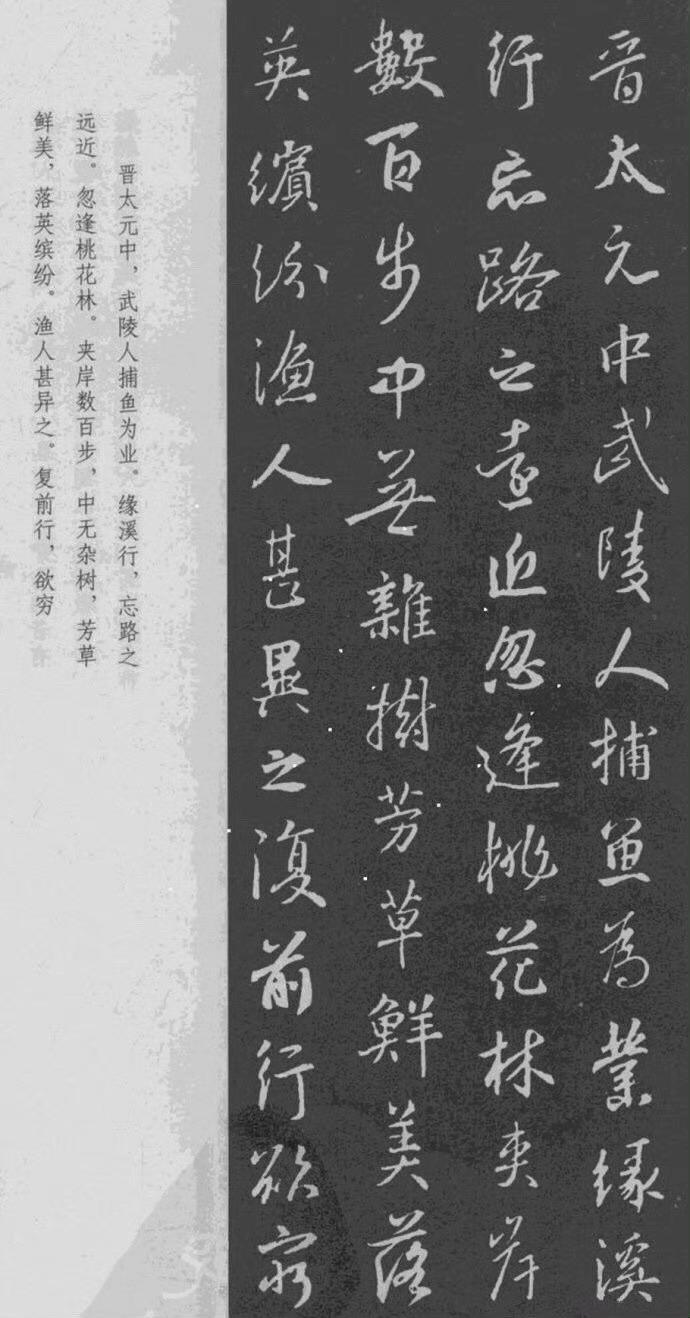 晋太元中武陵人捕鱼為業缘溪
行忘路之遠近忽逢桃花林夹岸
數百步中無雜樹芳草鮮美落
英繽紛漁人甚異之復前行欲窮
晋太元中，武陵人捕鱼为业。缘溪行，忘路之
远近。忽逢桃花林。夹岸数百步，中无杂树，芳草
鲜美，落英缤纷。渔人甚异之。复前行，欲穷